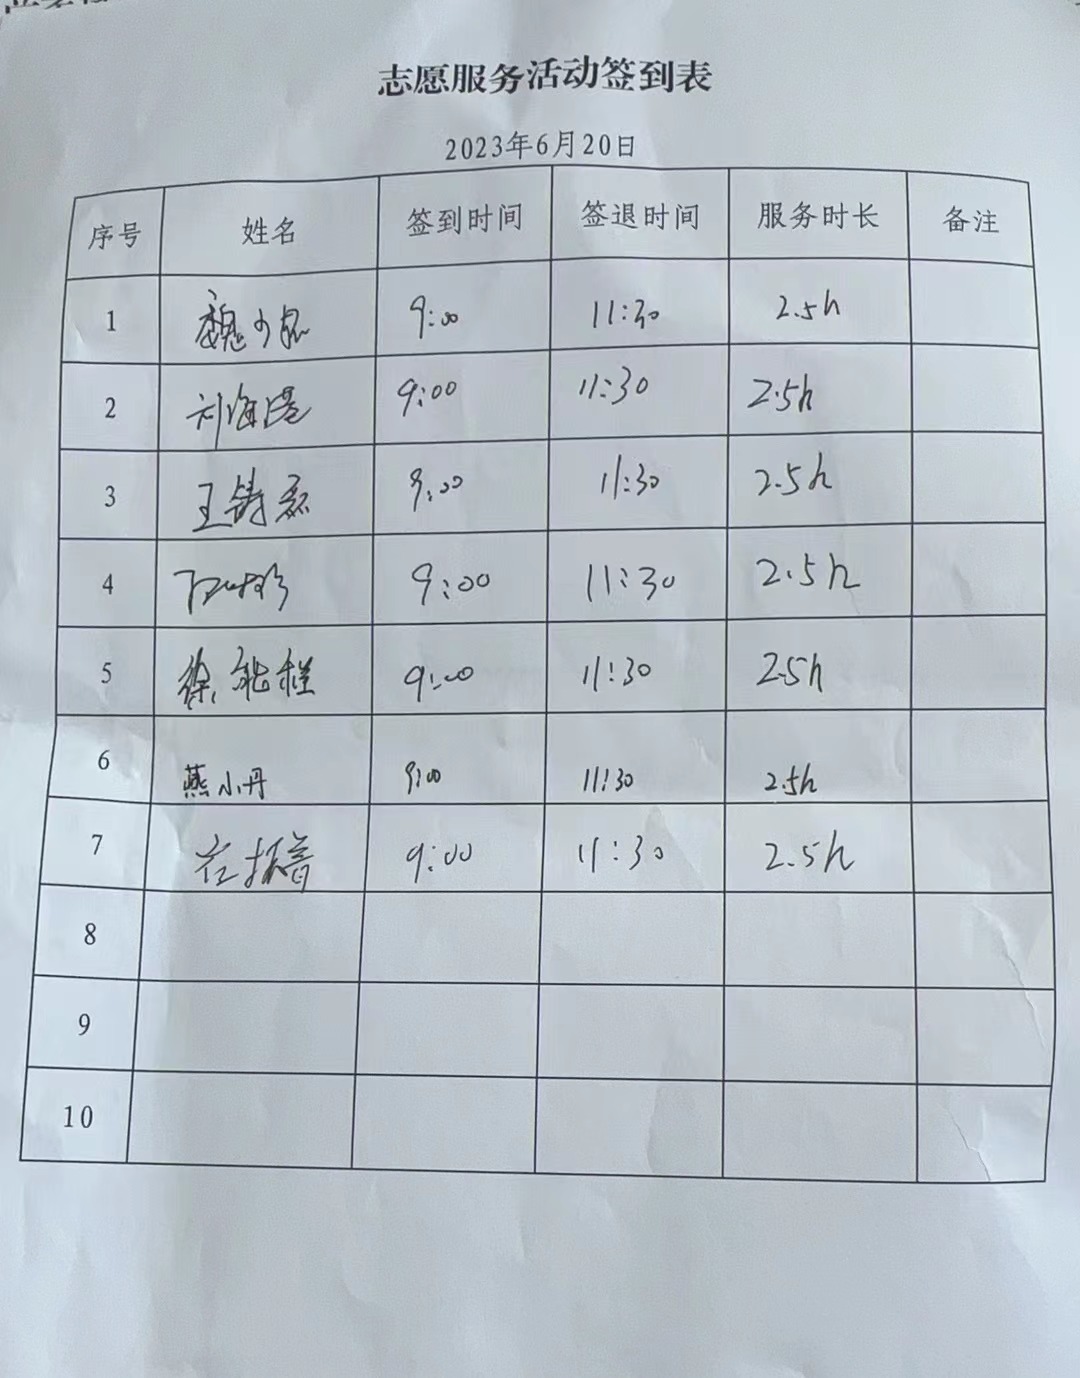 志愿服务活动签到表
2023年6月20日
序号 姓名 签到时间 签退时间 服务时长 备注
1 魏少 9:00 11:30 2.5h
2 刘海 9:00 11:30 2.5h
3 王铸磊 9:00 11:30 2.5h
4 9:00 11:30 2.5h
5 徐 9:00 11:30 2.5h
6 燕小丹 9:00 11:30 2.5h
7 9:00 11:30 2.5h
8
9
10